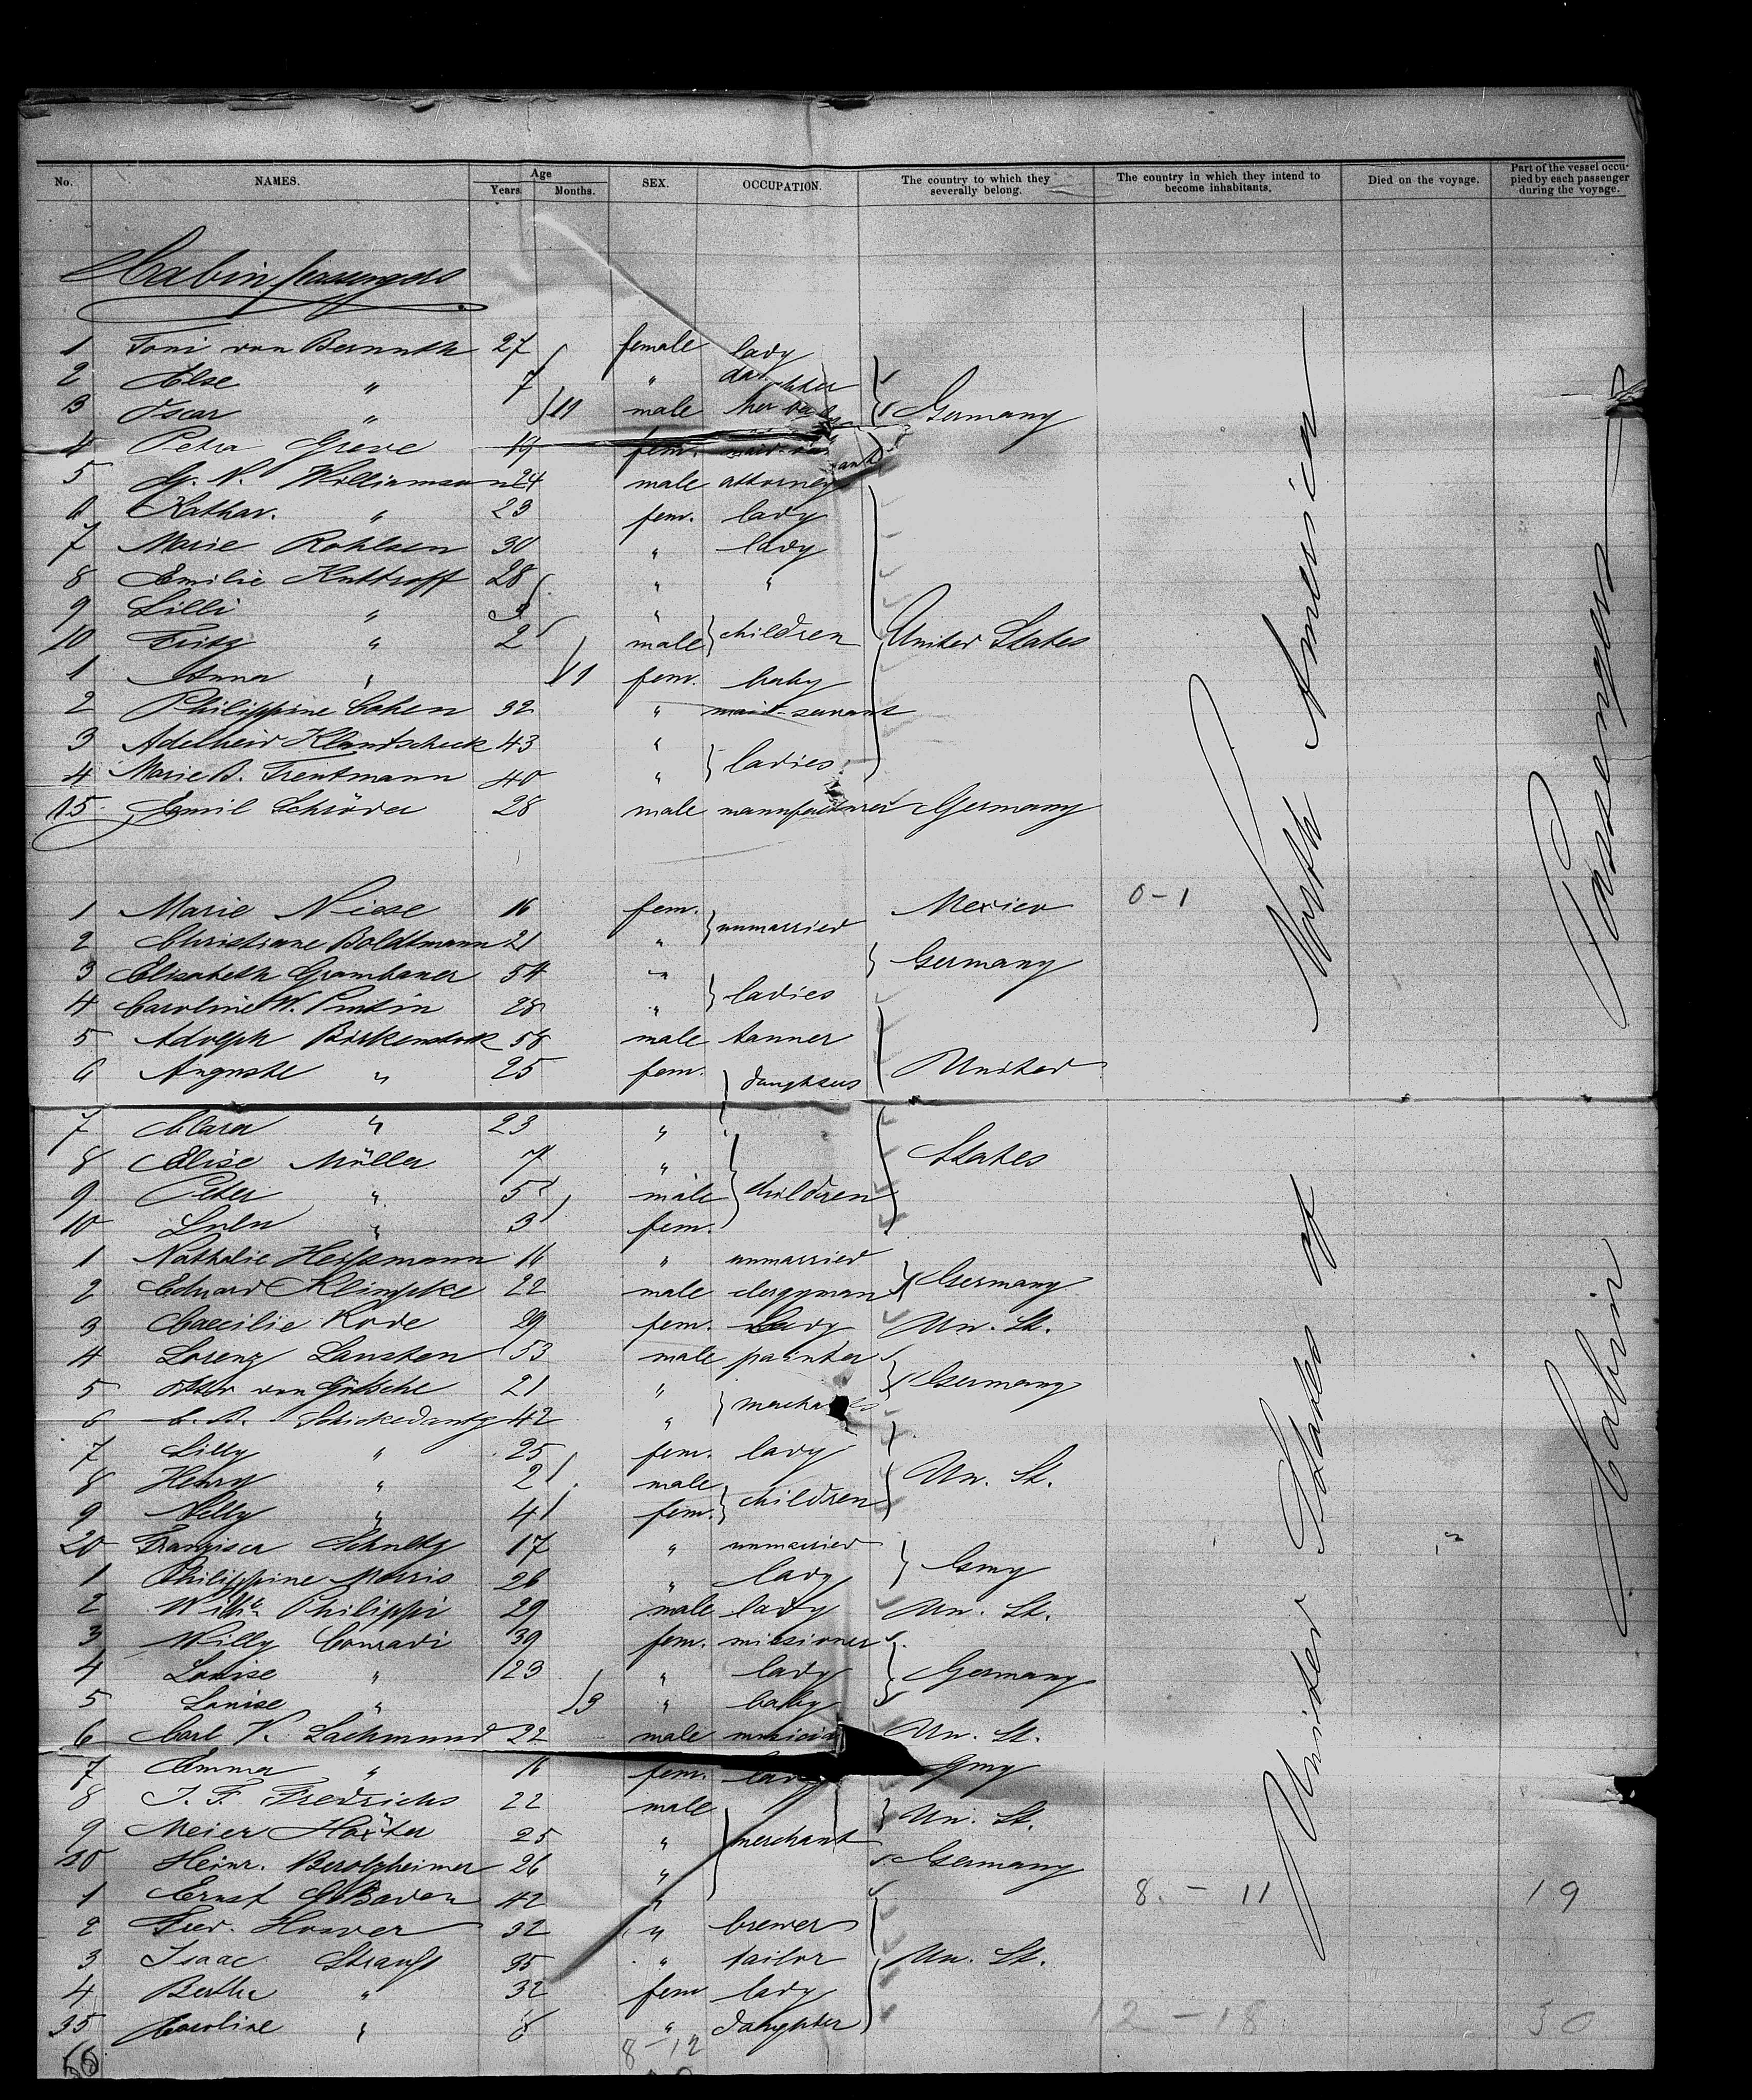 No. NAMES. Age Years Months. SEX. OCCUPATION. The country to which they severally belong. The country in which they intend to become inhabitants. Died on the voyage. Part of the vessel occupied by each passenger during the voyage.
Cabin passengers
1 Toni von Bernuth 27 female lady
2 Else " 7 " daughter
3 Oscar " 11 male her baby Germany
4 Petra Greve 19 fem. maid-servant
5 G. N. Williamson 24 male attorney
6 Kathar. " 23 fem. lady
7 Marie Rohlsen 30 " lady
8 Emilie Kuttroff 28 " "
9 Lilli " 3 "
10 Fritz " 2 male children United States
1 Anna " 11 fem. baby
2 Philippine Cohen 32 " maid-servant
3 Adelheid Klandscheck 43 "
4 Marie B. Trentmann 40 " ladies
15 Emil Schröder 28 male manufacturer Germany
1 Marie Niese 16 fem. Mexico 0-1
2 Christiane Boldtmann 21 " unmarried
3 Elisabeth Grambauer 54 " Germany
4 Caroline W. 28 " ladies
5 Adolph Birkenstock 58 male tanner
6 Auguste " 25 fem. daughters United
7 Clara " 23 "
8 Elise Möller 7 " States
9 Peter " 5 male children
10 Lulu " 3 fem.
1 Nathalie Heissmann 16 " unmarried
2 Eduard Klimpke 22 male clergyman Germany
3 Caecilie Rode 29 fem. Lady Un. St.
4 Lorenz Lausten 53 male painter
5 von Götsche 21 " Germany
6 C. B. Schickedantz 42 " merchants
7 Lilly " 25 fem. lady
8 Henry " 2 male Un. St.
9 Nelly " 4 fem. children
20 Francisca Schultz 17 " unmarried
1 Philippine Morris 26 " lady Gmy
2 Philippi 29 male lady Un. St.
3 Willy Conradi 39 fem. missioner
4 Louise " 23 " lady Germany
5 Louise " 3 " baby
6 Carl V. Lachmund 22 male musician Un. St.
7 Emma " 16 fem. lady Gmy
8 J. F. Fredrichs 22 male Un. St.
9 Meier Höxter 25 " merchant
30 Heinr. Berolzheimer 26 " Germany
1 Ernst Baden 42 " 8. - 11 19
2 Fred. Hower 32 " brewer
3 Isaac Strauss 35 " tailor Un. St.
4 Bertha " 32 fem lady
35 Caroline " 8 " daughter 12 - 18 30
50 8-12
United States of North America
Cabin Passengers